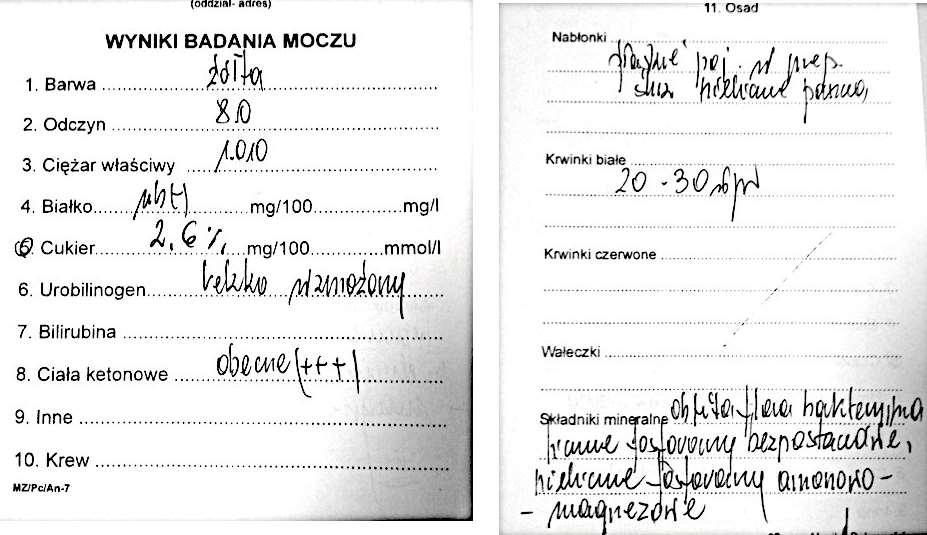 (oddział- adres)
WYNIKI BADANIA MOCZU
1. Barwa żółta
2. Odczyn 8,0
3. Ciężar właściwy 1.010
4. Białko (-) mg/100 mg/l
5. Cukier 2,6 % mg/100 mmol/l
6. Urobilinogen lekko wzmożony
7. Bilirubina
8. Ciała ketonowe obecne (+++)
9. Inne
10. Krew
MZ/Pc/An-7
11. Osad
Nabłonki
płaskie poj. w prep.
nieliczne pasma,
Krwinki białe
20 - 30 wpw
Krwinki czerwone
Wałeczki
Składniki mineralne obfita flora bakteryjna
liczne fosforany bezpostaciowe,
nieliczne fosforany amonowo-
- magnezowe